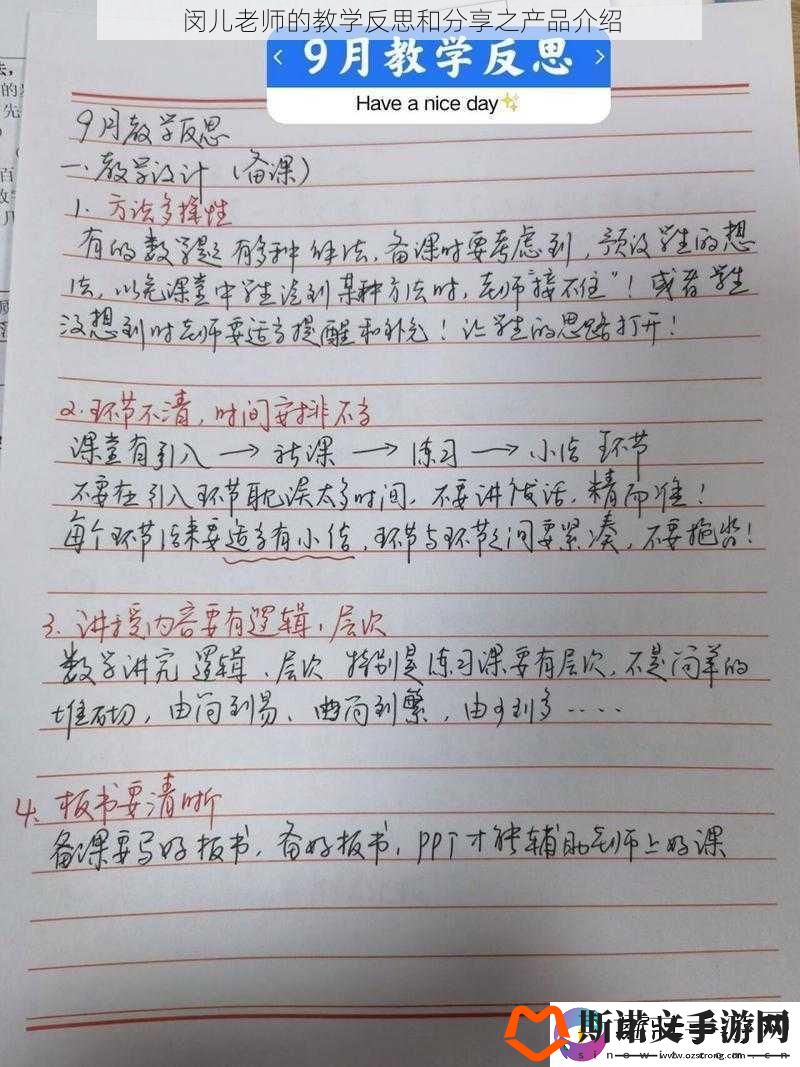 闵儿老师的教学反思和分享之产品介绍
9月教学反思
Have a nice day
9月教学反思
一、教学设计（备课）
1. 方法多样性
有的数学题有多种解法，备课时要考虑到，预设学生的想
法，以免课堂中学生说到某种方法时，老师"接不住"！或者学生
没想到时老师要适当提醒和补充！让学生的思路打开！
2. 环节不清，时间安排不当
课堂有引入 → 新课 → 练习 → 小结 环节
不要在引入环节耽误太多时间，不要讲废话，精而准！
每个环节结束要适当有小结，环节与环节之间要紧凑，不要拖沓！
3. 讲授内容要有逻辑、层次
数学讲究逻辑、层次 特别是练习课要有层次，不是简单的
堆砌，由简到易、由简到繁，由少到多……
4. 板书要清晰
备课要写好板书，备好板书，PPT才能辅助老师上好课
斯诺文手游网
www.ozstrong.com